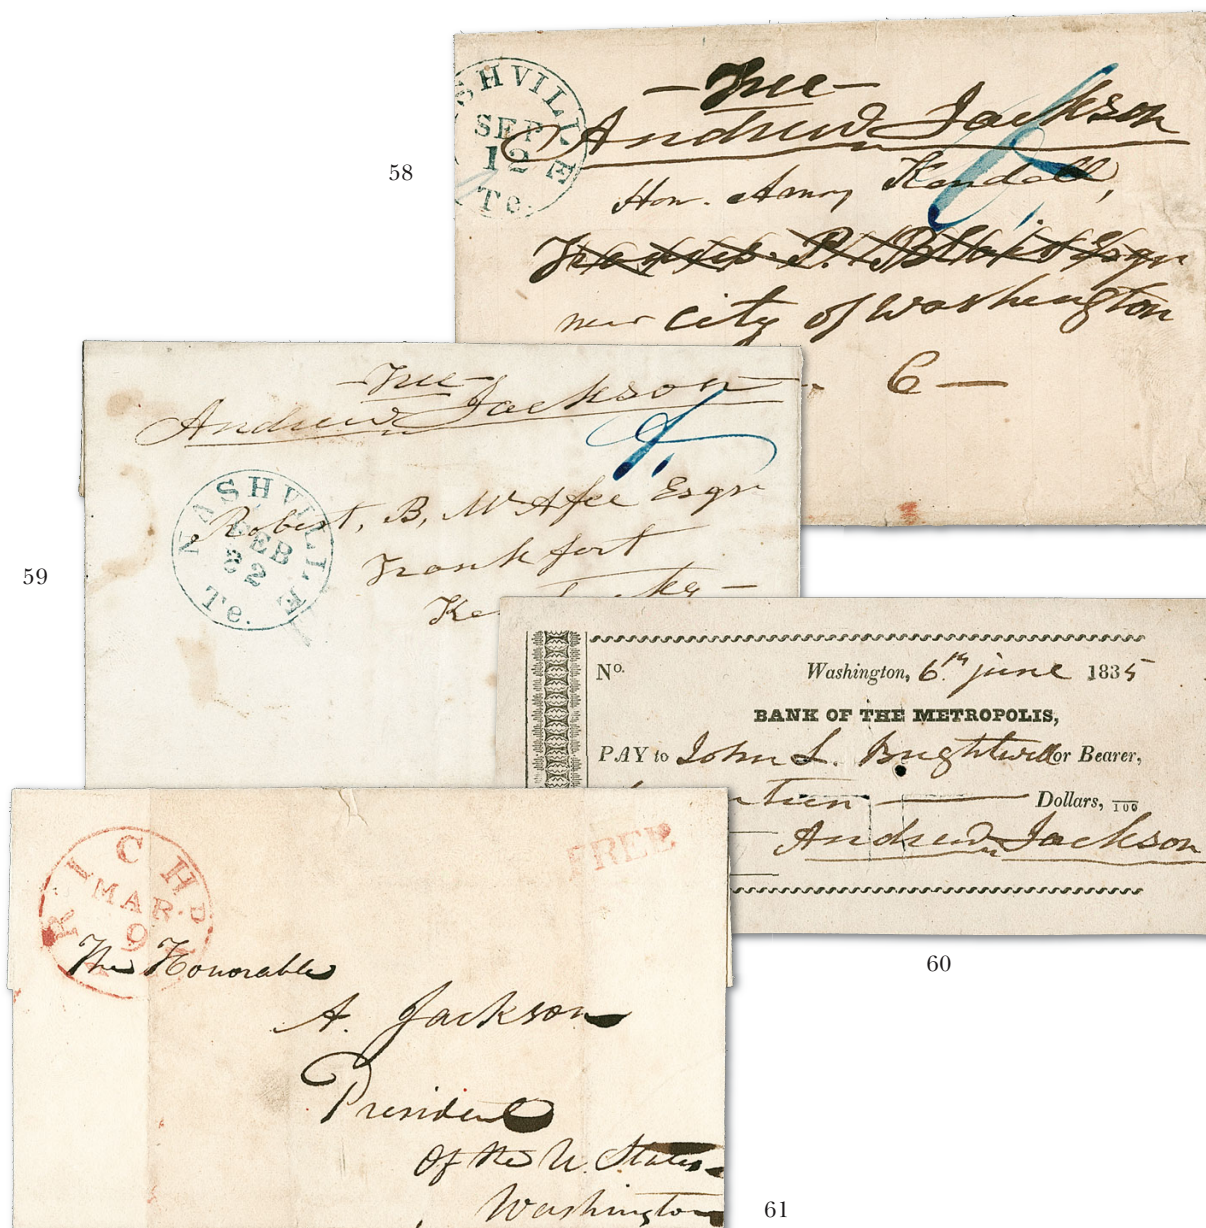 58
NASHVILLE
SEP
12
Te.
— Free —
Andrew Jackson
Hon. Amos Kendall,
Francis P. Blair Esqr
near City of Washington
C —
59
— Free —
Andrew Jackson
NASHVILLE
FEB
22
Te.
Robert, B, McAfee Esqr
Frankfort
No.
Washington, 6th june 1835
BANK OF THE METROPOLIS,
PAY to John L. Brightwell or Bearer,
Dollars, /100
Andrew Jackson
60
RICHD
MAR.
9
FREE
The Honorable
A. Jackson
President
Of the U. States
Washington
61